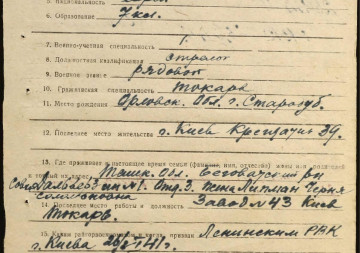 5. Национальность
6. Образование 7 кл.
7. Военно-учетная специальность 1.
8. Должностная квалификация стрелок
9. Военное звание рядовой
10. Гражданская специальность токарь
11. Место рождения Орловск. Обл. г. Стародуб.
12. Последнее место жительства г. Киев Крещатик 39
13. Где проживает в настоящее время семья (фамилия, имя, отчество) жены или родителей
Ташк. Обл. р-н
№1. Отд. 3. жена Липман
14. Последнее место работы и должность Завод № 43 Киев
Токарь.
15. Каким райгорвоенкоматом и когда призван Ленинским РВК
г. Киева